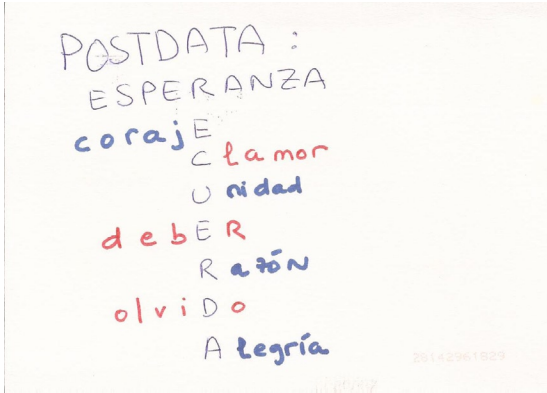 POSTDATA :
ESPERANZA
corajE
Clamor
Unidad
debER
RazóN
olviDo
Alegría
28142961829